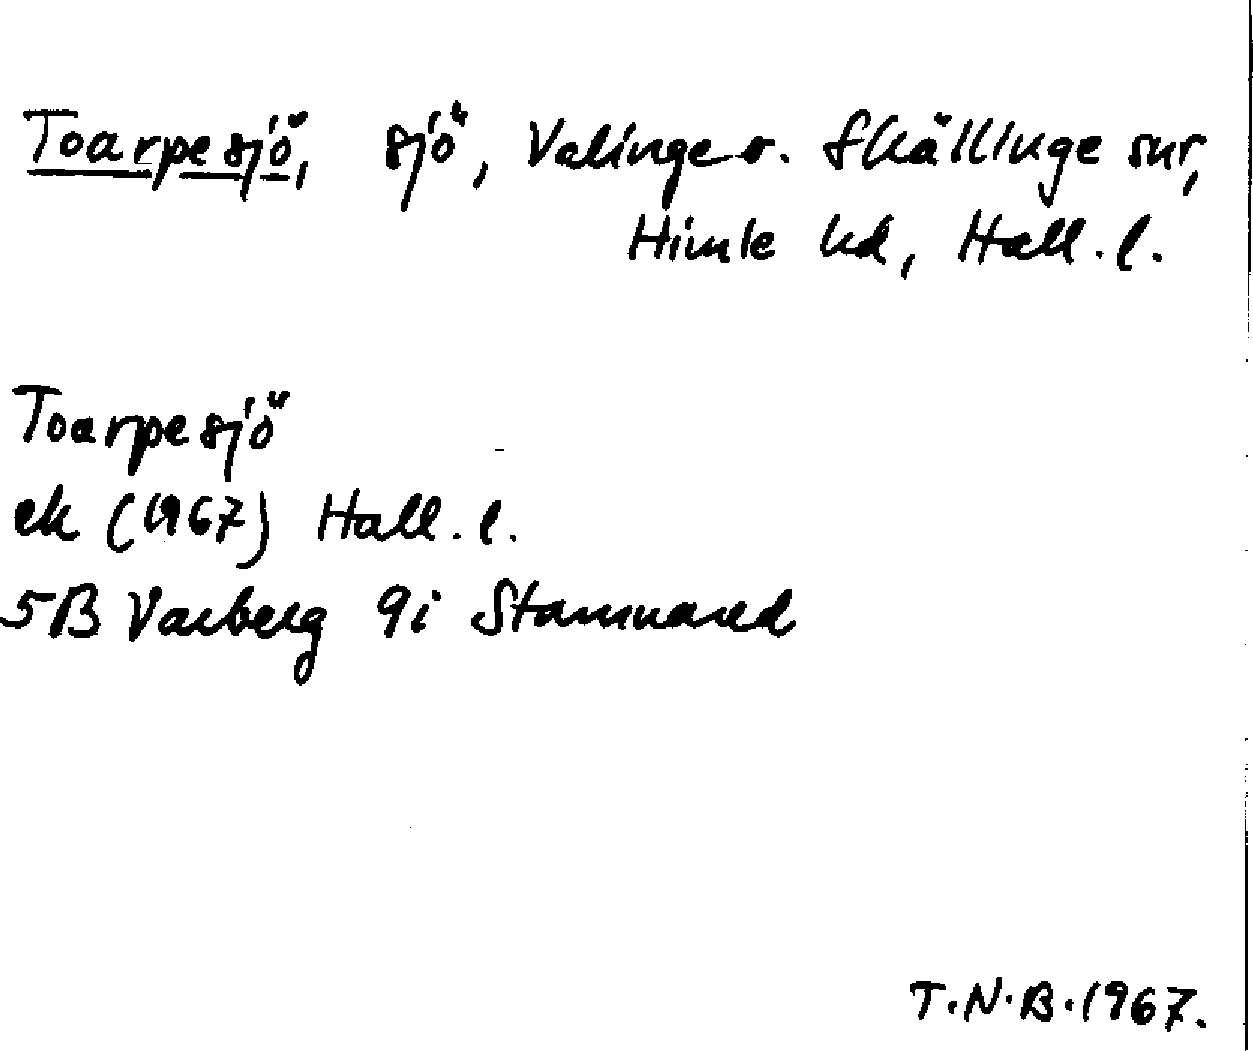 Toarpesjö, sjö, Valinge o. Skällinge snr,
Himle hd, Hall. l.
Toarpesjö
ek (1967) Hall. l.
5B Varberg 9i Stamnared
T.N.B. 1967.